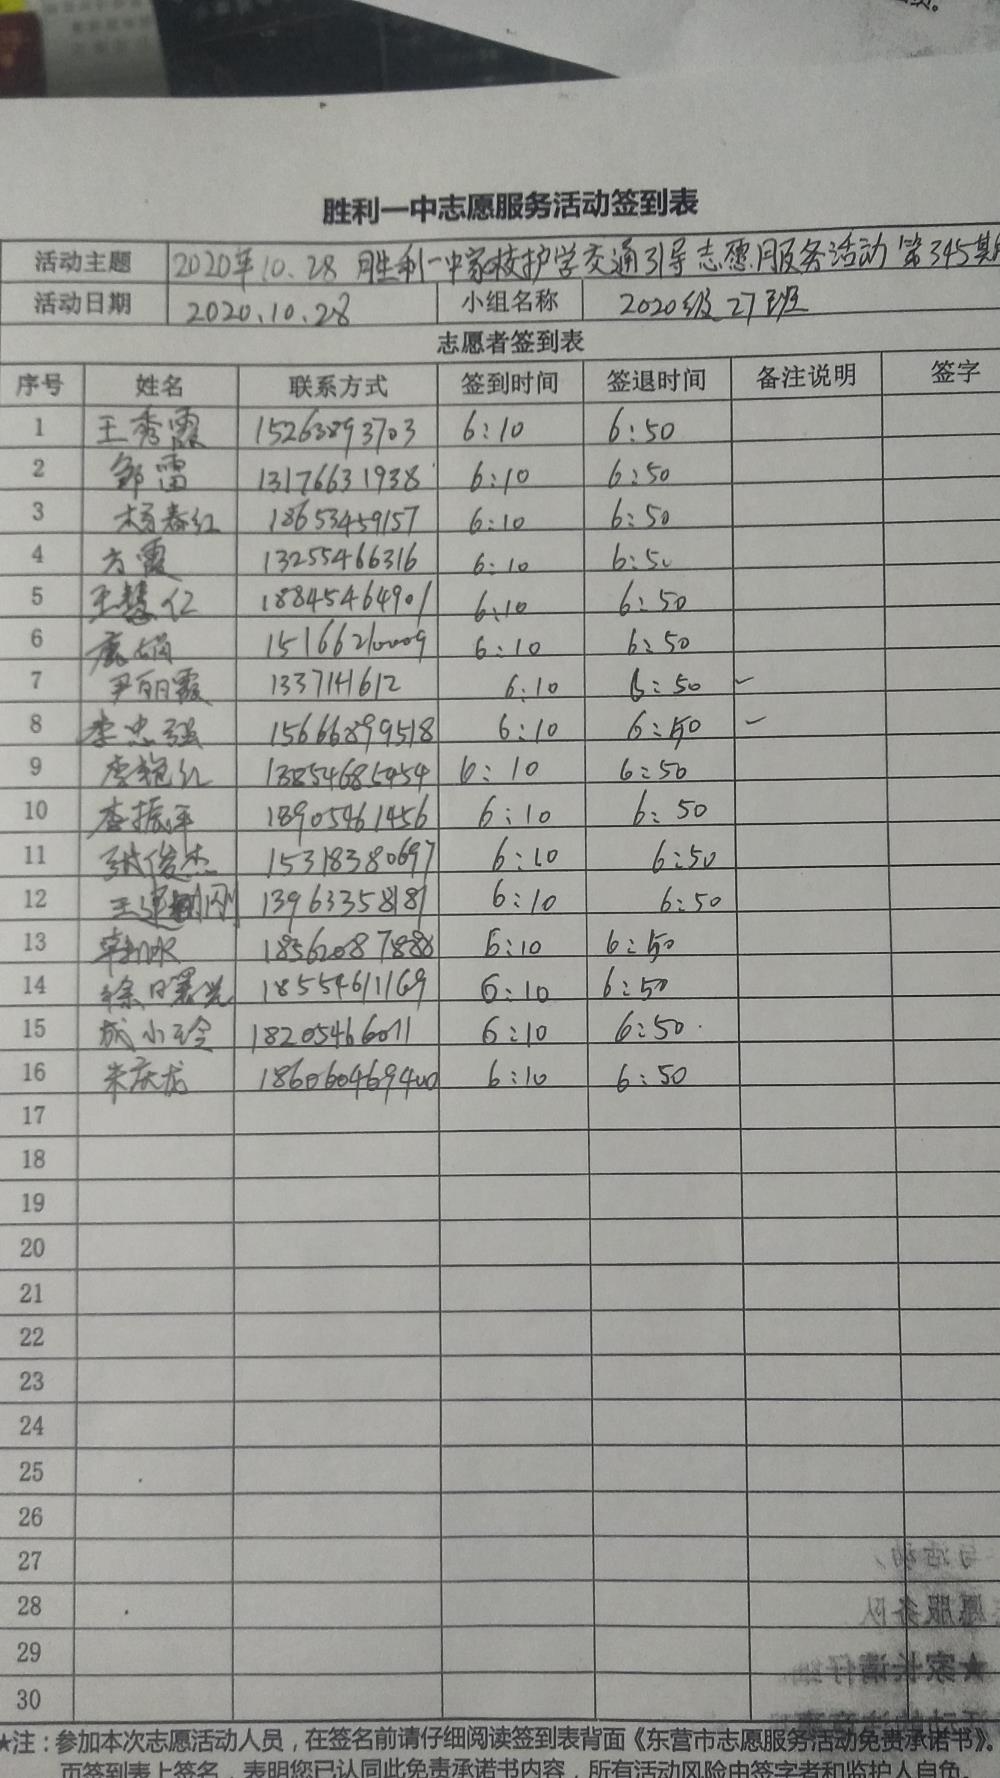 胜利一中志愿服务活动签到表
活动主题 2020年10.28 胜利一中家校护学交通引导志愿服务活动 第345期
活动日期 2020.10.28 小组名称 2020级27班
志愿者签到表
序号 姓名 联系方式 签到时间 签退时间 备注说明 签字
1 王秀霞 15263893703 6:10 6:50
2 邹雷 13176631938 6:10 6:50
3 杨春红 18653459157 6:10 6:50
4 方霞 13255466316 6:10 6:50
5 王慧仁 18845464901 6:10 6:50
6 15166210009 6:10 6:50
7 尹丽霞 1337141612 6:10 6:50
8 李忠强 15666899518 6:10 6:50
9 李艳红 13854685454 6:10 6:50
10 李振平 18905461456 6:10 6:50
11 张俊杰 15318380697 6:10 6:50
12 王建刚 13963358187 6:10 6:50
13 18562087888 6:10 6:50
14 徐曙光 18554611169 6:10 6:50
15 成小玲 18205466011 6:10 6:50
16 朱庆龙 186060469400 6:10 6:50
17
18
19
20
21
22
23
24
25
26
27
28
29
30
★注：参加本次志愿活动人员，在签名前请仔细阅读签到表背面《东营市志愿服务活动免责承诺书》。
页签到表上签名，表明您已认同此免责承诺书内容，所有活动风险由签字者和监护人自负。